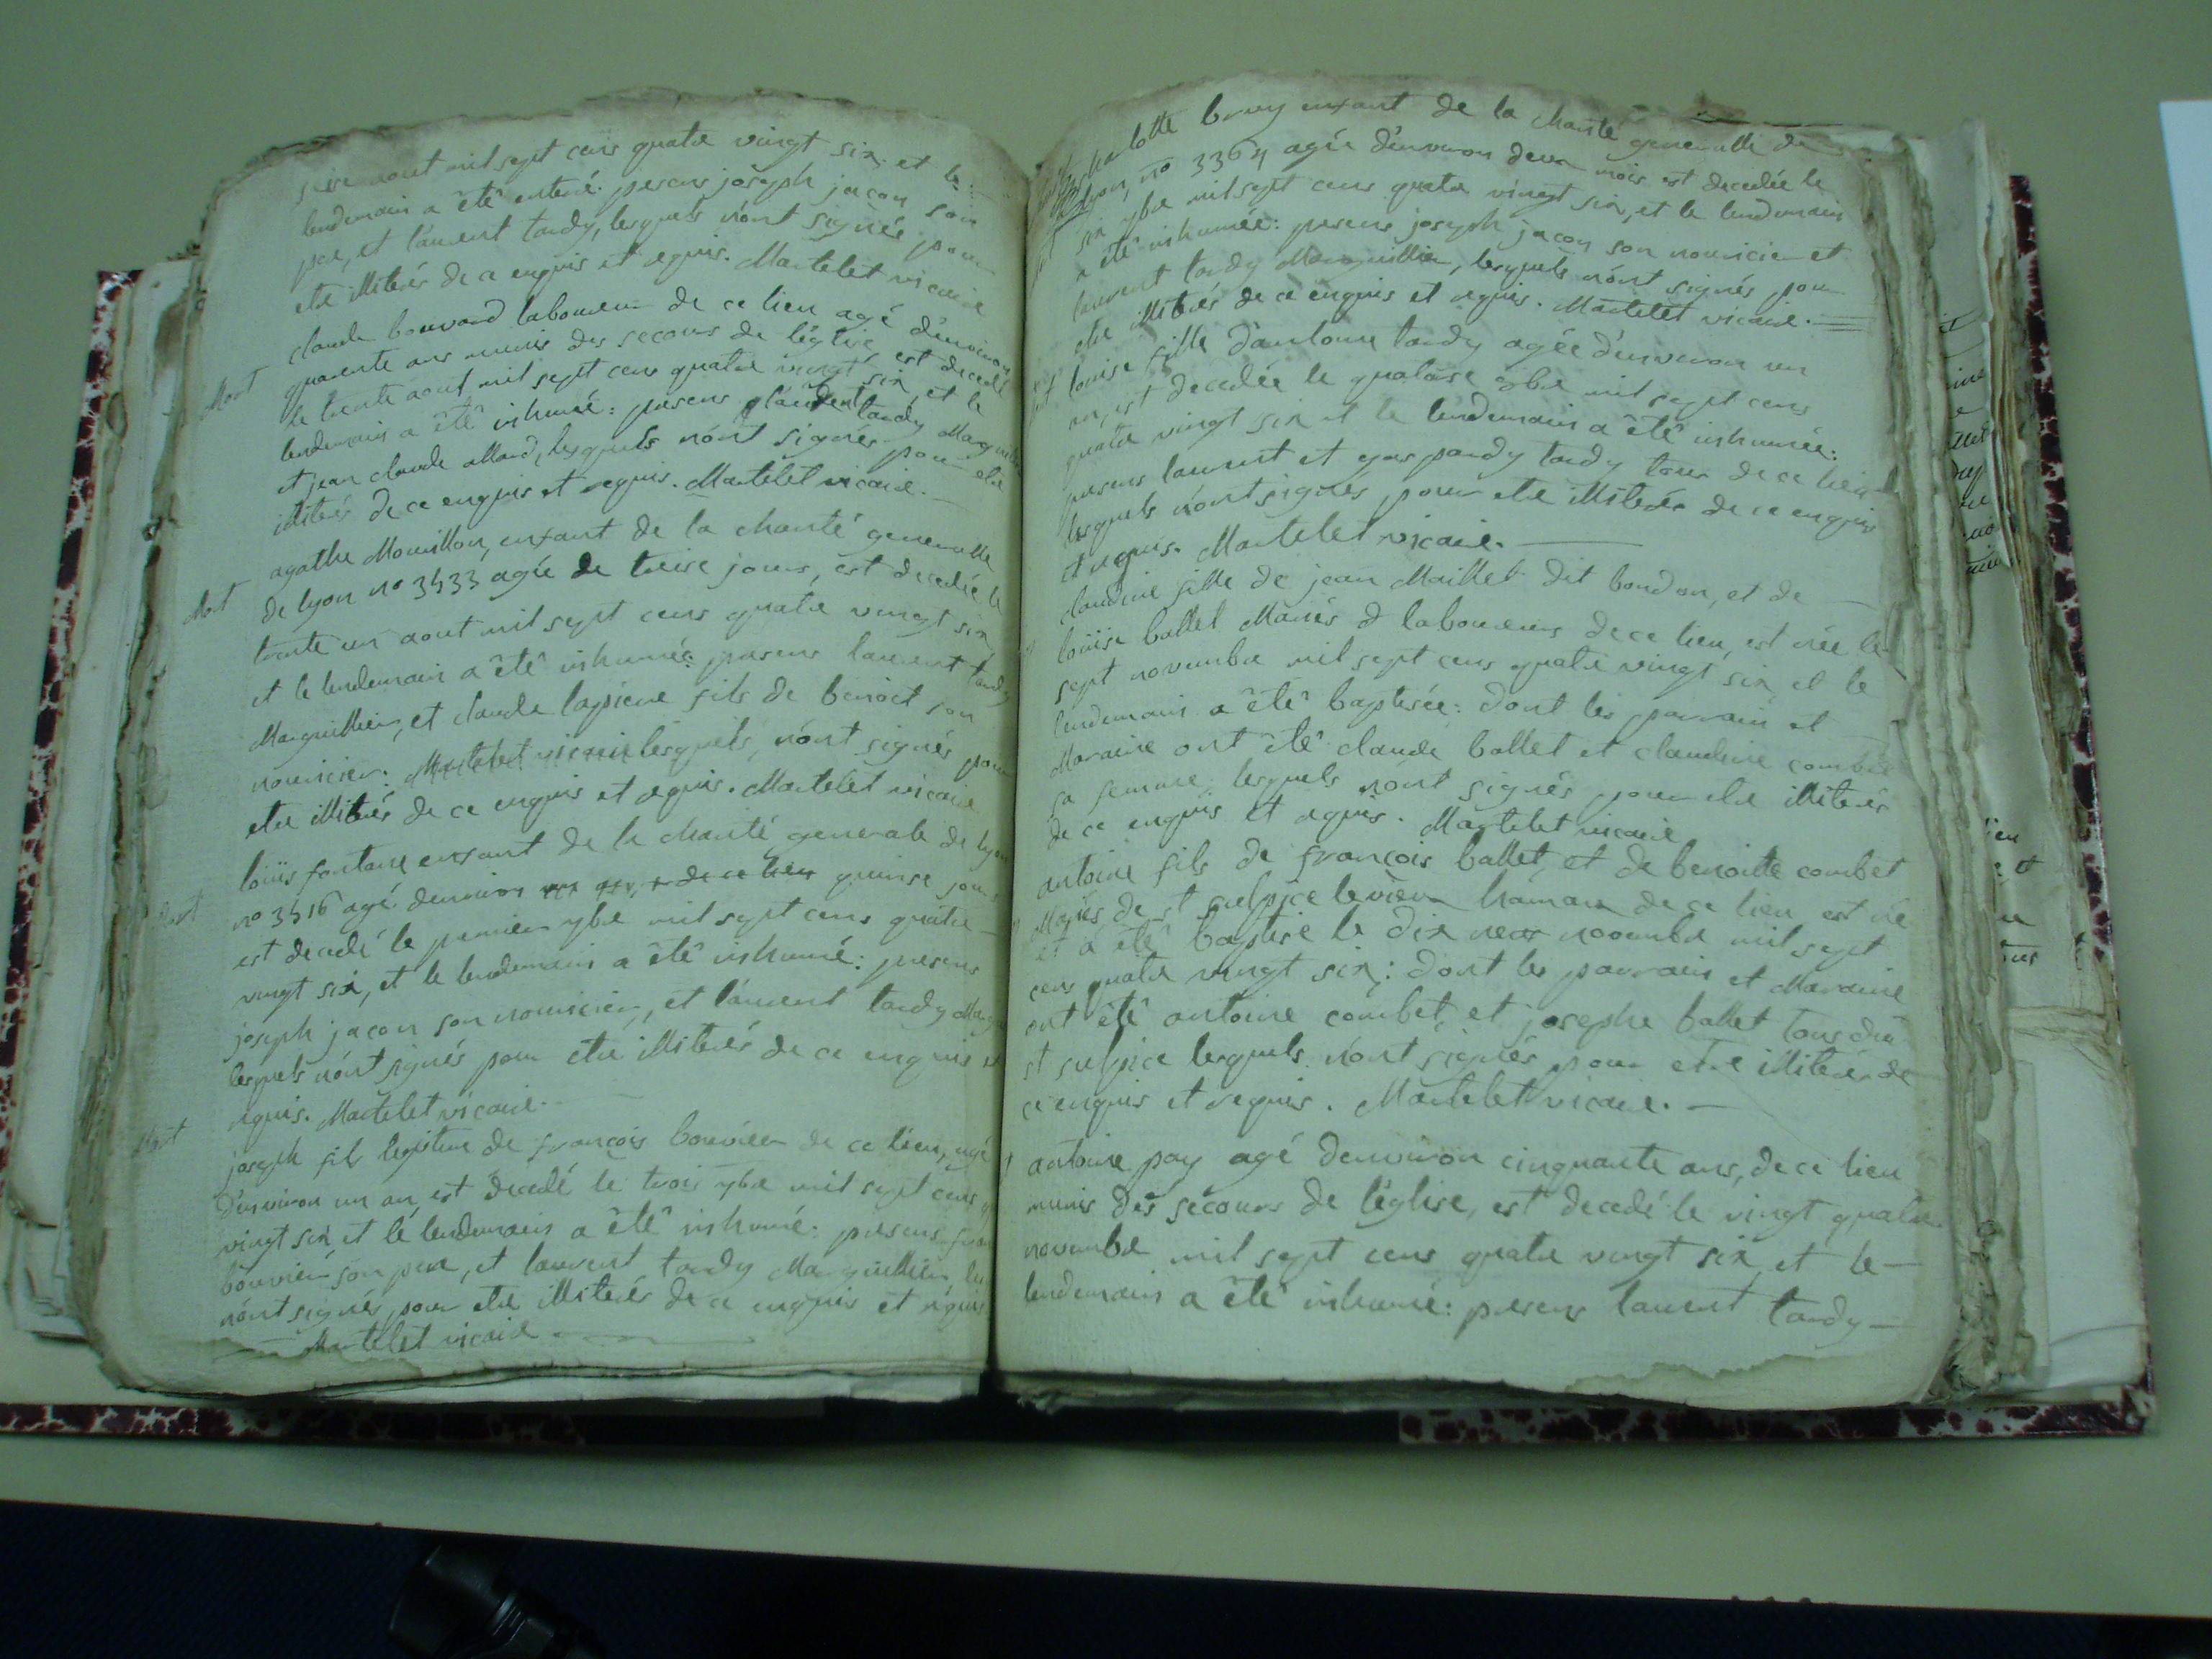 seise aout mil sept cens quatre vingt six et le
lendemain a été enterré: presens joseph jacon son
pere, et laurent tardy, lesquels n'ont signés pour
etre illiterés de ce enquis et requis. Martelet vicaire
claude bouvard laboureur de ce lieu agé d'environ
Mort
quarente ans munis des secours de l'église, est decedé
le trente aout mil sept cens quatre vingt six, et le
lendemain a été inhumé: presens laurent tardy Marguillier
et jean claude allard, lesquels n'ont signés pour etre
illiterés de ce enquis et requis. Martelet vicaire.
agathe Mouillon, enfant de la charité generalle
Mort
de lyon no 3433 agée de treise jours, est decedée le
trente un aout mil sept cens quatre vingt six,
et le lendemain a été inhumée: presens laurent tardy
Marguillier, et claude lapierre fils de benoit son
nouricier. Martelet vicaire lesquels, n'ont signés pour
etre illiterés de ce enquis et requis. Martelet vicaire
loüis fontane enfant de la charité generale de lyon
Mort
no 3416 agé denviron de ce lieu quinse jours
est decedé le premier 7bre mil sept cens quatre
vingt six, et le lendemain a été inhumé: presens
joseph jacon son nouricier, et laurent tardy
lesquels n'ont signés pour etre illiterés de ce enquis et
requis. Martelet vicaire.
Mort
joseph fils legitime de françois bouvier de ce lieu, agé
d'environ un an, est decedé le trois 7bre mil sept cens
vingt six et le lendemain a été inhumé: presens
bouvier son pere, et laurent tardy Marguillier,
n'ont signés pour etre illiterés de ce enquis et requis
Martelet vicaire.
charlotte bruy enfant de la charité generalle de
lyon, no 3364 agée d'environ deux mois est decedée le
six 7bre mil sept cens quatre vingt six, et le lendemain
a été inhumée: presens joseph jacon son nouricier et
laurent tardy Marguillier, lesquels n'ont signés pour
etre illiterés de ce enquis et requis. Martelet vicaire.
louise fille d'antoine tardy agée d'environ un
an, est decedée le quatorse 7bre mil sept cens
quatre vingt six et le lendemain a été inhumée:
presens laurent et tardy tous de ce lieu
lesquels n'ont signés pour etre illiterés de ce enquis
et requis. Martelet vicaire.
claudine fille de jean Maillet dit bondon, et de
loüise ballet Mariés & laboureurs de ce lieu, est née le
sept novembre mil sept cens quatre vingt six et le
lendemain a été baptisée: dont les parrain et
Maraine ont été claude ballet et claudine combet
sa femme lesquels n'ont signés pour etre illiterés
de ce enquis et requis. Martelet vicaire
antoine fils de françois ballet, et de benoitte combet
Mariés de st sulpice le vieux hamau de ce lieu est né
et a été baptisé le dix neuf novembre mil sept
cens quatre vingt six: dont les parrain et Maraine
ont été antoine combet, et josephe ballet tous du
st sulpice lesquels n'ont signés pour etre illiterés de
ce enquis et requis. Martelet vicaire.
antoine pay agé denviron cinquante ans, de ce lieu
munis des secours de l'église, est decedé le vingt quatre
novembre mil sept cens quatre vingt six et le
lendemain a été inhumé: presens laurent tardy